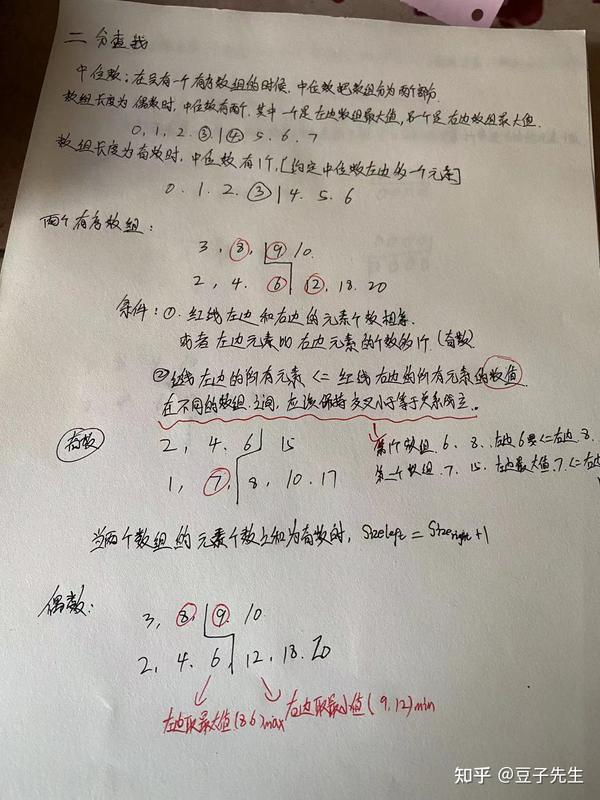 二分查找
中位数:在只有一个有序数组的时候,中位数把数组分为两个部分
数组长度为偶数时,中位数有两个.其中一个是左边数组最大值,另一个是右边数组最大值.
0, 1, 2. ③|④. 5. 6. 7
数组长度为奇数时,中位数有1个,[约定中位数左边多一个元素]
0. 1. 2. ③|4. 5. 6
两个有序数组:
3, 8, 9, 10.
2, 4. 6 12, 18. 20
条件:①. 红线左边和右边的元素个数相等.
或者 左边元素比右边元素的个数多1个(奇数)
②红线左边的所有元素 <= 红线右边的所有元素的数值
在不同的数组之间,应该保持交叉小于等于关系成立.
奇数 2, 4. 6 15
1, 7, 8, 10. 17
第一个数组. 6. 8. 左边6要<=右边.8.
第二个数组. 7. 15. 左边最大值.7.<=右边
当两个数组的元素个数之和为奇数时, Sizeleft = Sizeright+1
偶数:
3, 8, 9, 10
2, 4. 6, 12, 18. 20
左边取最大值(8.6)max
右边取最小值(9,12)min
知乎 @豆子先生